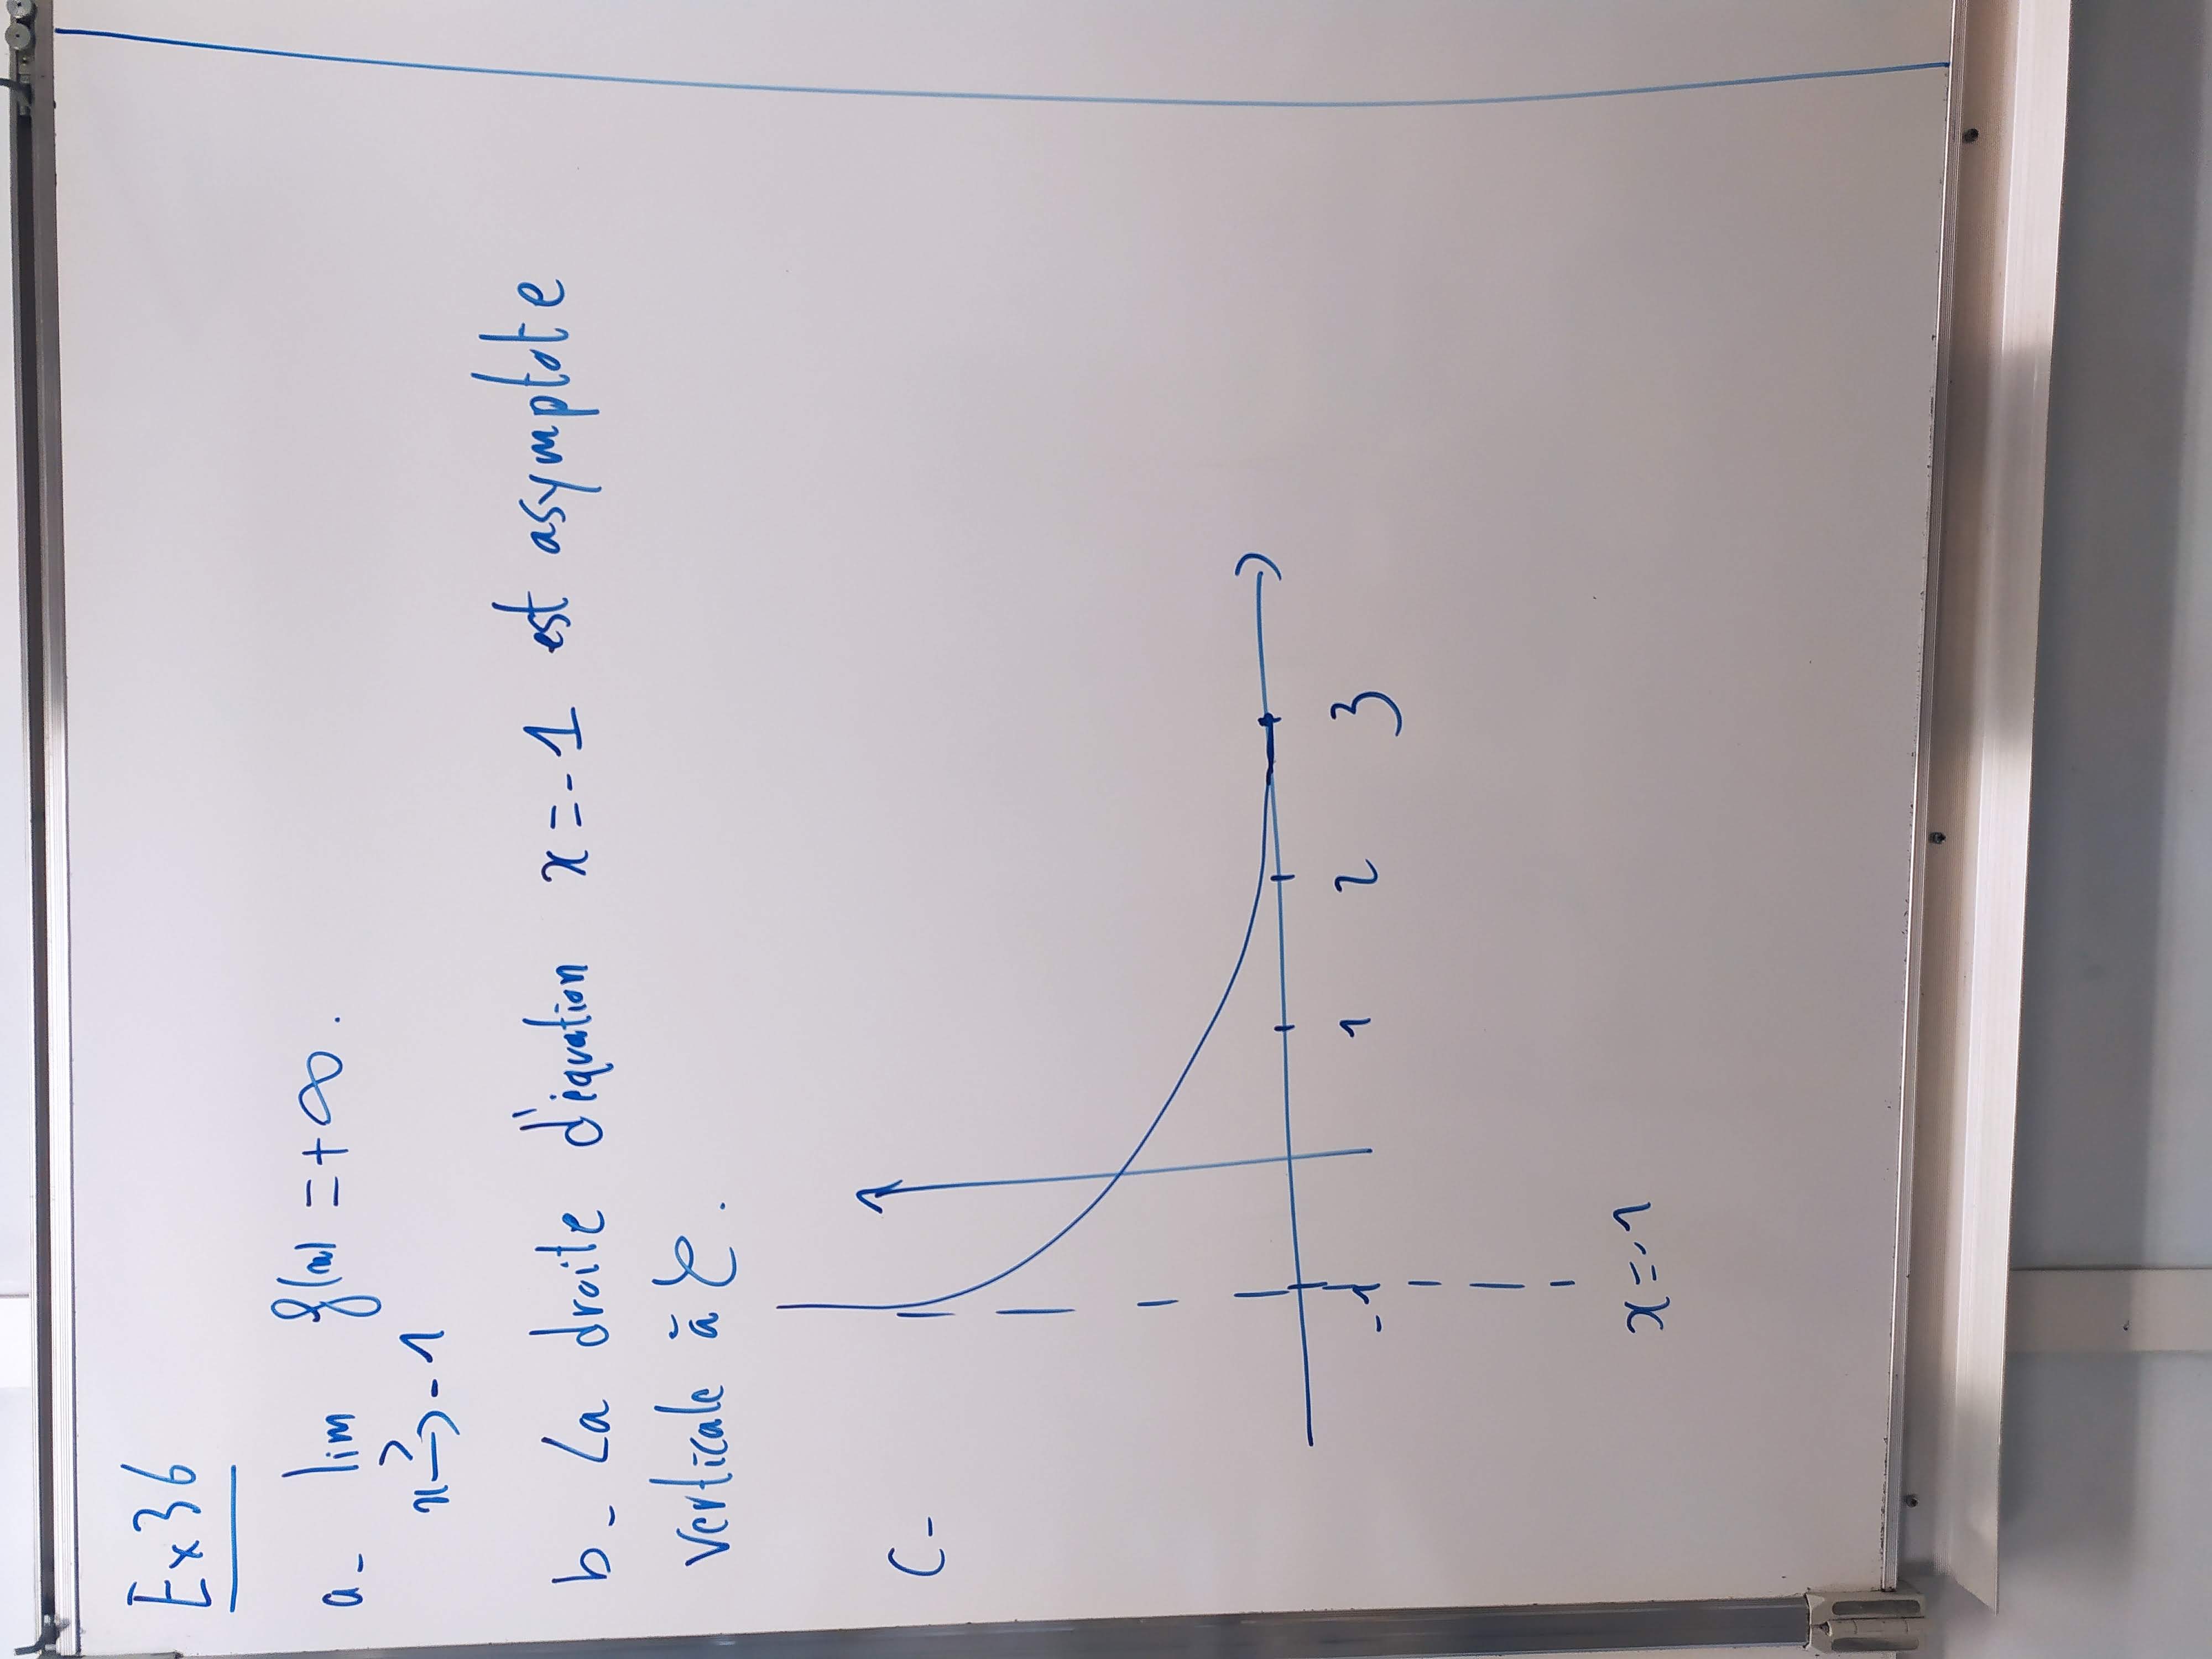 Ex 36
a - lim f(x) = + ∞ .
x →> -1
b - La droite d'équation x = -1 est asymptote
verticale à C .
c -
-1 1 2 3
x = -1